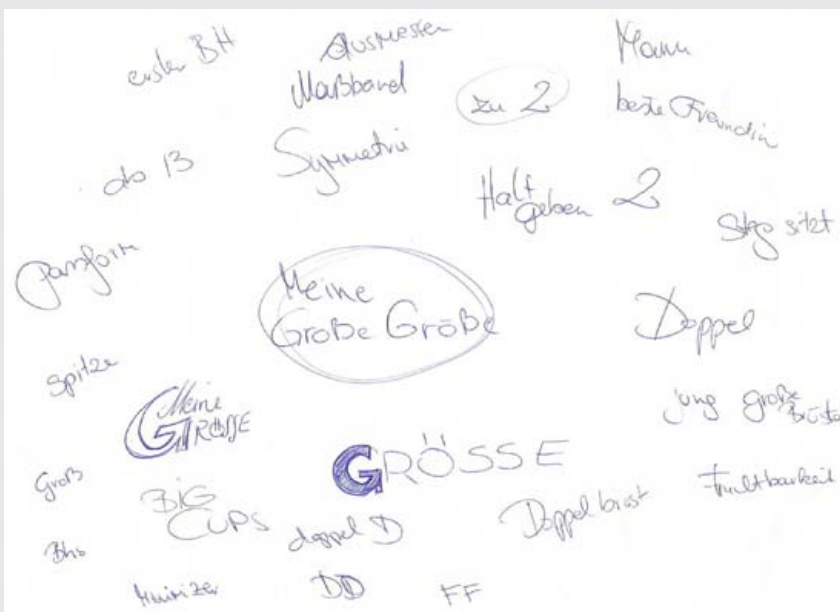 erster BH
Ausmessen
Maßband
zu 2
Mann
beste Freundin
ab 13
Symmetrie
Halt
geben
2
Steg sitzt
Passform
Meine
Große Größe
Doppel
Spitze
Meine
GRÖSSE
jung große
Brüste
GRÖSSE
Groß
BIG
CUPS
doppel D
Doppelbrust
Fruchtbarkeit
Bhs
Minimizer
DD
FF